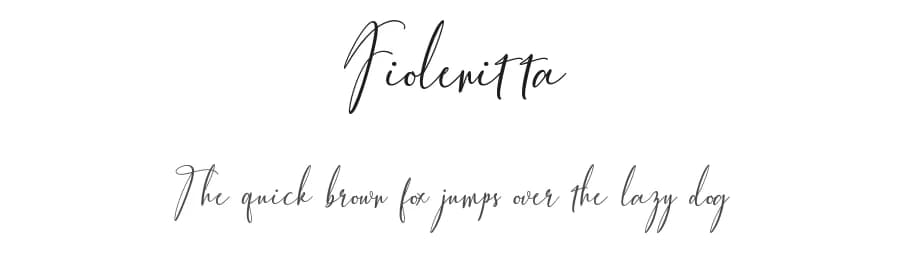 Fiolenitta
The quick brown fox jumps over the lazy dog